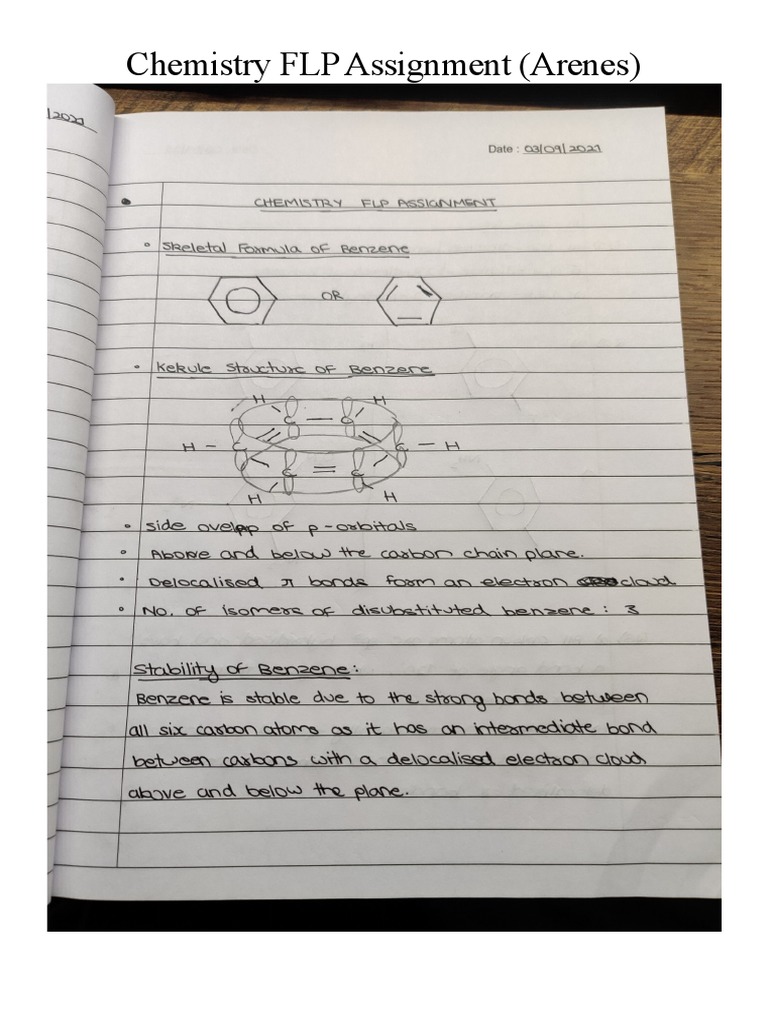 Chemistry FLP Assignment (Arenes)
/2021
Date : 03/09/2021
CHEMISTRY FLP ASSIGNMENT
Skeletal Formula of Benzene
OR
Kekule Structure of Benzene
H H
C C
H C C H
C C
H H
side ovelap of p-orbitals
Above and below the carbon chain plane.
Delocalised π bonds form an electron cloud
No. of isomers of disubstituted benzene : 3
Stability of Benzene :
Benzene is stable due to the strong bonds between
all six carbon atoms as it has an intermediate bond
between carbons with a delocalised electron cloud
above and below the plane.